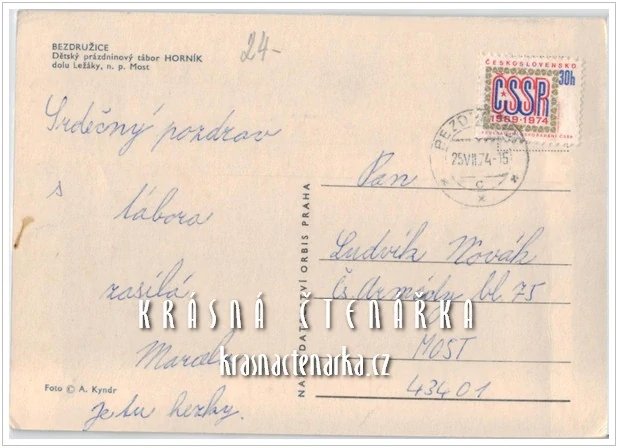 BEZDRUŽICE
Dětský prázdninový tábor HORNÍK
dolu Ležáky, n. p. Most
24-
ČESKOSLOVENSKO
30h
ČSSR
1969-1974
BEZDRUŽICE
25VII.74-15
C
Srdečný pozdrav
s tábora
zasílá
Marcela
Je tu hezky.
Pan
Ludvík Novák
Čs. Armády bl. 75
MOST
43401
NAKLADATELSTVÍ ORBIS PRAHA
Foto © A. Kyndr
KRÁSNÁ ČTENÁŘKA
krasnactenarka.cz